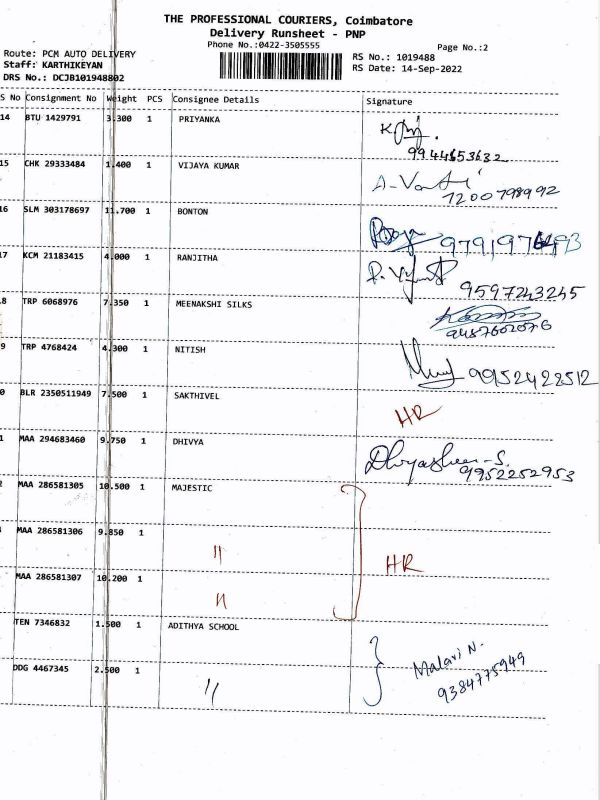 THE PROFESSIONAL COURIERS, Coimbatore
Delivery Runsheet - PNP
Phone No.:0422-3505555
Page No.:2
Route: PCM AUTO DELIVERY
Staff: KARTHIKEYAN
DRS No.: DCJB101948802
RS No.: 1019488
RS Date: 14-Sep-2022
S No Consignment No Weight PCS Consignee Details Signature
14 BTU 1429791 3.300 1 PRIYANKA
9944653632
15 CHK 29333484 1.400 1 VIJAYA KUMAR
7200798992
16 SLM 303178697 11.700 1 BONTON
17 KCM 21183415 4.000 1 RANJITHA
9597243245
8 TRP 6068976 7.350 1 MEENAKSHI SILKS
9487602076
9 TRP 4768424 4.300 1 NITISH
9952428512
0 BLR 2350511949 7.500 1 SAKTHIVEL
HR
1 MAA 294683460 9.750 1 DHIVYA
9952252953
2 MAA 286581305 10.500 1 MAJESTIC
MAA 286581306 9.850 1 "
HR
MAA 286581307 10.200 1 "
TEN 7346832 1.500 1 ADITHYA SCHOOL
Malavi N.
9384775949
DDG 4467345 2.500 1 "